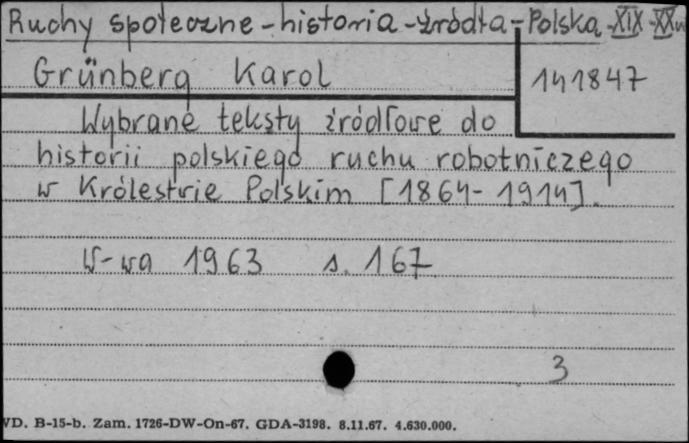 Ruchy społeczne - historia - źródła - Polska - XIX - XX w
Grünberg Karol
141847
Wybrane teksty źródłowe do
historii polskiego ruchu robotniczego
w Królestwie Polskim [1864-1914].
W-wa 1963 s. 167
3
VD. B-15-b. Zam. 1726-DW-On-67. GDA-3198. 8.11.67. 4.630.000.